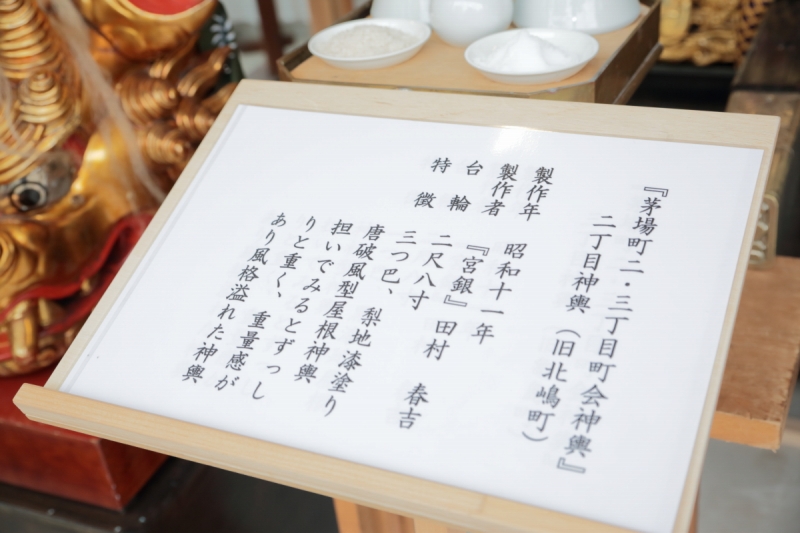 『茅場町二・三丁目町会神輿』
二丁目神輿（旧北嶋町）
製作年　昭和十一年
製作者　『宮銀』田村　春吉
台輪　二尺八寸
特徴　三つ巴、
唐破風型屋根神輿
梨地漆塗り
担いでみるとずっし
りと重く、重量感が
あり風格溢れた神輿